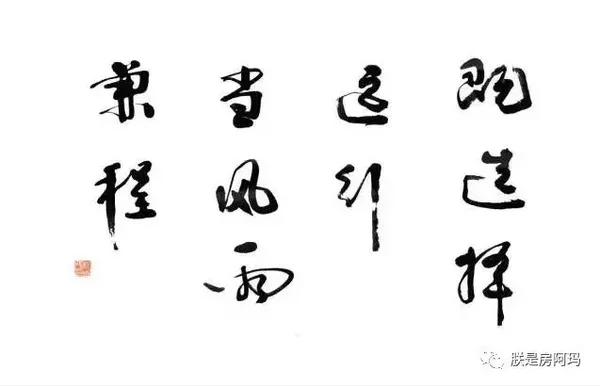 既选择
远行
当风雨
兼程
朕是房阿玛